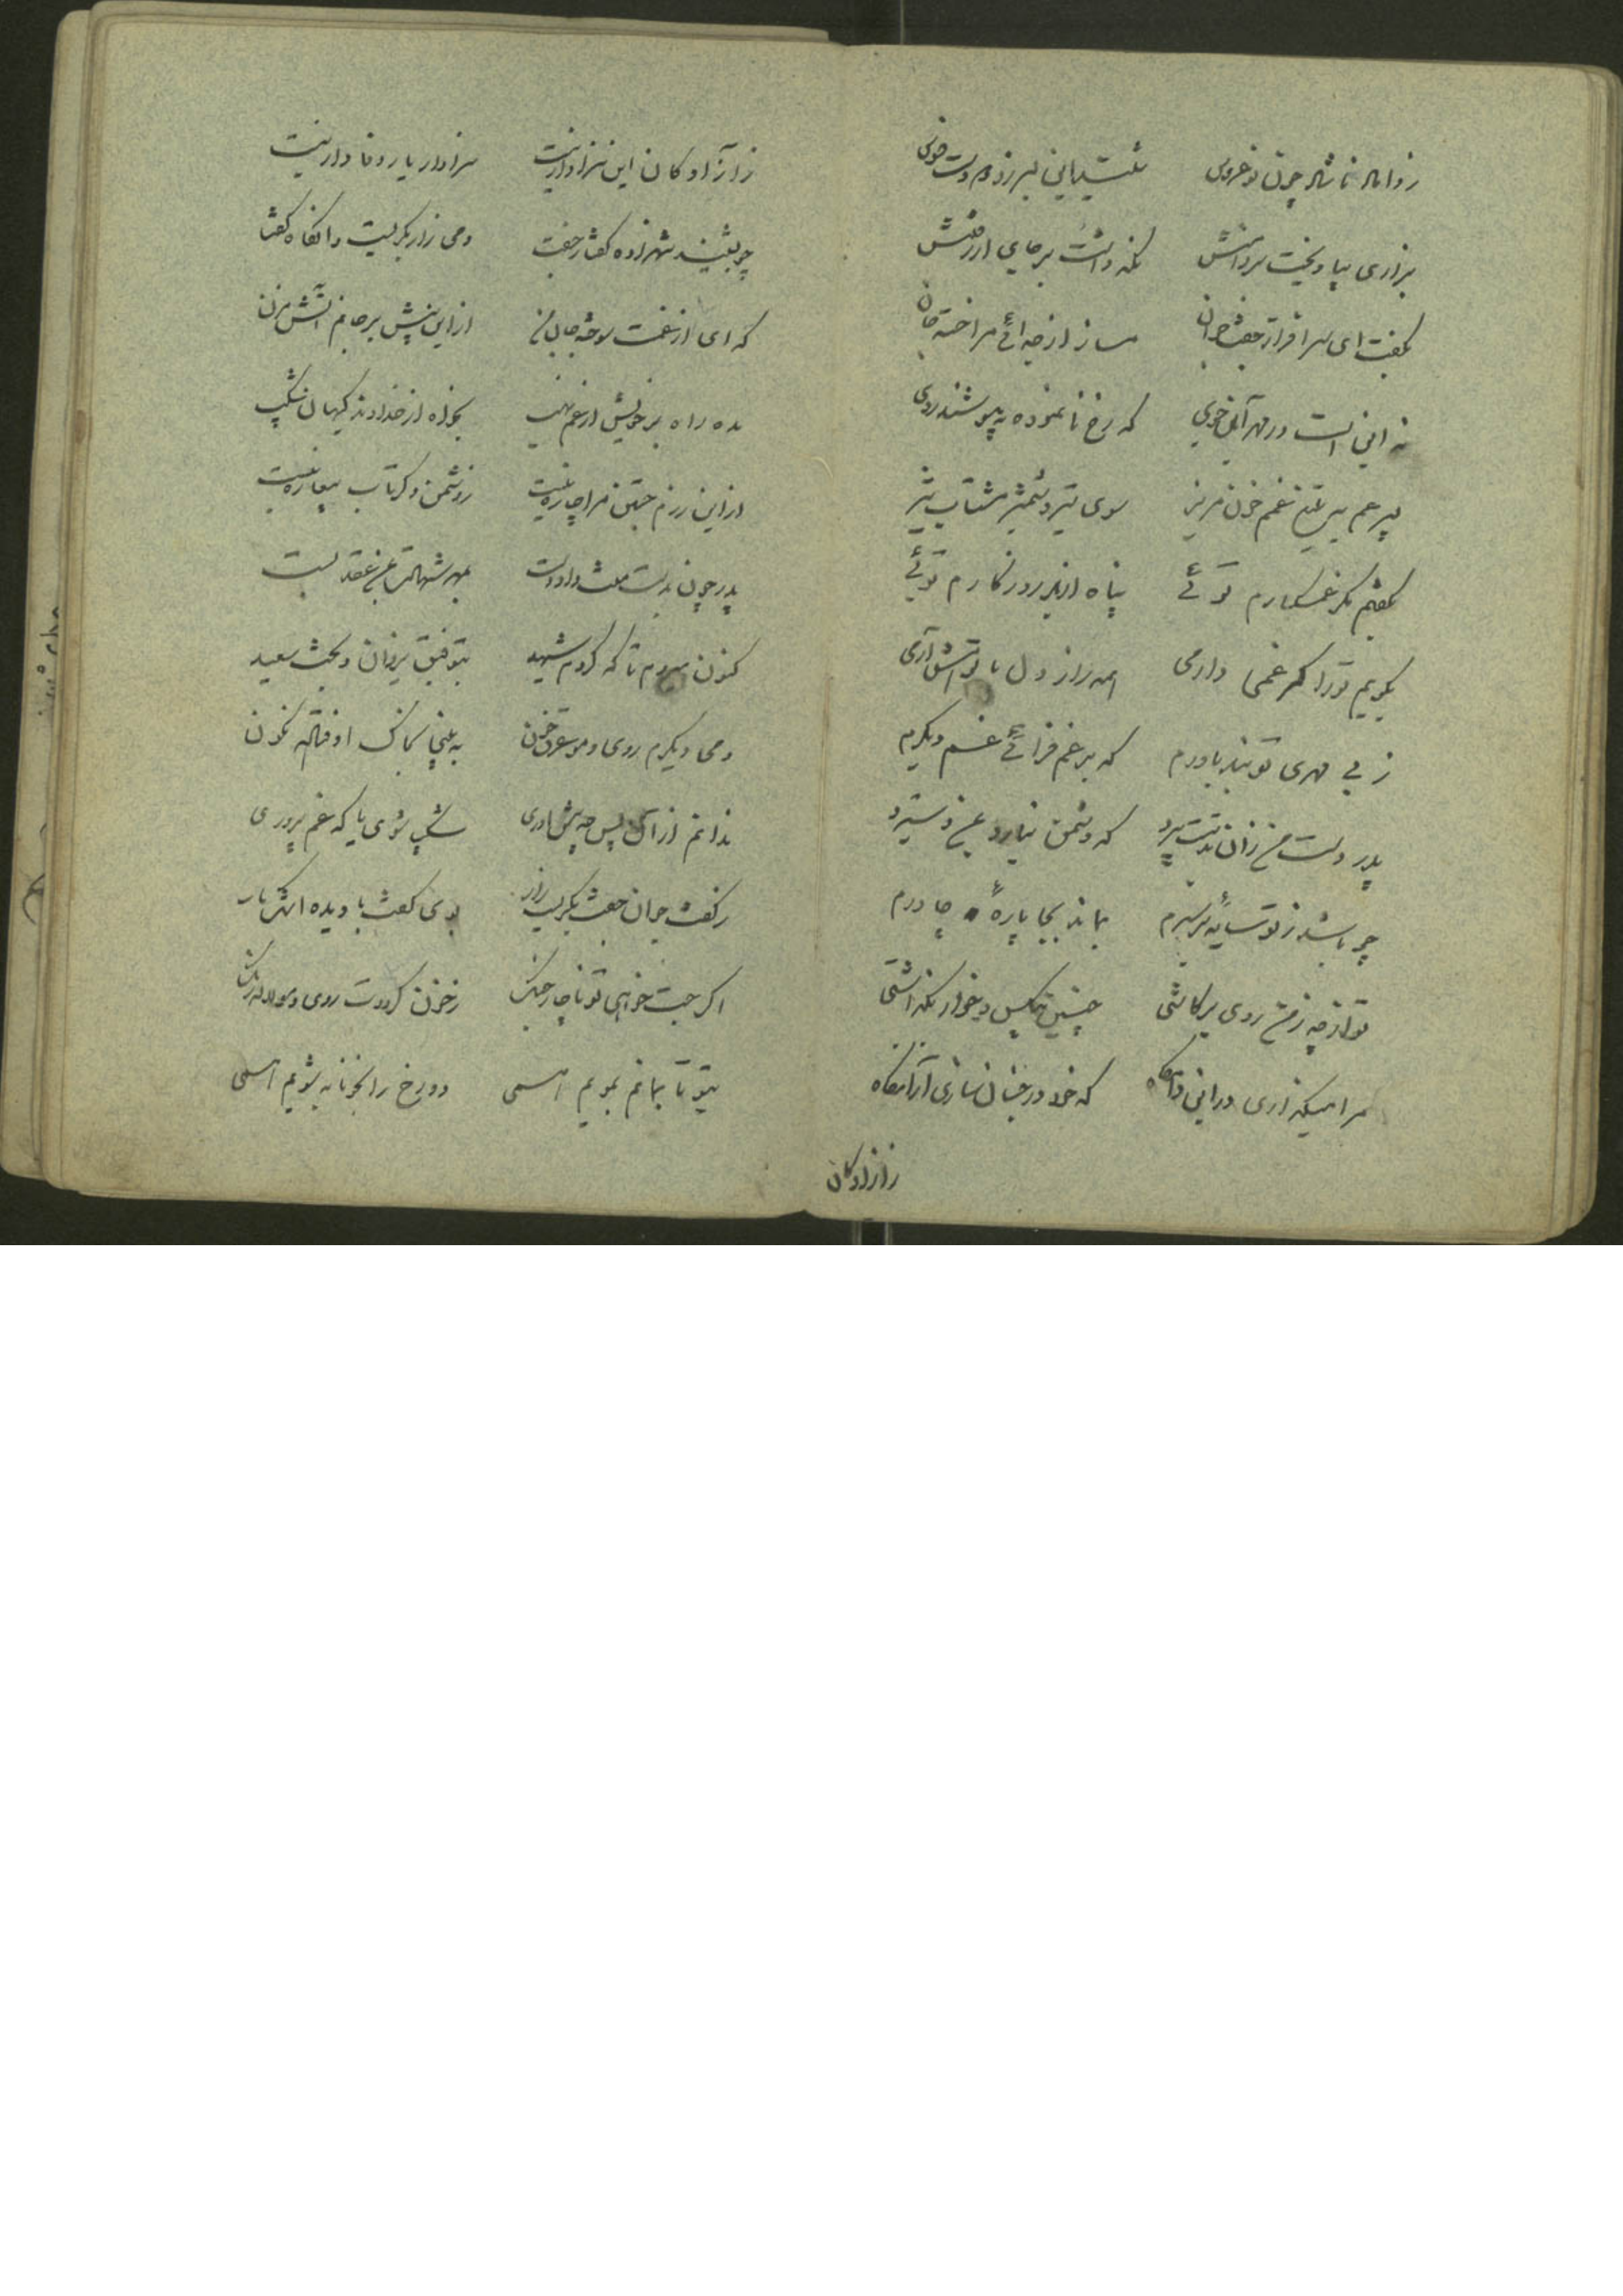 روانه نا شد چون نو عروس شکیبایی
بزاری بیاویخت بر دامنش نگه داشت بر جای از رفتنش
بگفت ای سرافراز جفت جوان مساز از جدائی مرا خسته جان
نه این است در مهر آئین خوی که رخ نانموده بپوشند روی
به تیغ غمم خون مریز سوی تیر و شمشیر مشتاب تیز
بگفتم مگر غمگسارم توئی پناه اندر روزگارم توئی
بگویم تو را گر غمی دارمی همه راز دل با تو
ز بی مهری تو نبد باورم که بر غم فزائی غم دیگرم
پدر دست من زان بدستت سپرد که دشمن نیارد
چو باشد ز تو سایه بر سرم بماند بجا پارهٔ چادرم
تو از چه ز من روی برگاشتی چنین بیکس و خوار بگذاشتی
مرا میگذاری در این که خود در جنان سازی آرامگاه
زآزادگان
زآزادگان این سزاوار نیست سزاوار یار وفادار نیست
چو بشنید شهزاده گفتار جفت دمی زار بگریست وانگاه گفت
که ای از غمت سوخته جان من از این بیش بر جانم آتش مزن
مده راه بر خویش از غم نهیب بخواه از خداوند کیهان شکیب
از این رزم جستن مرا چاره نیست
پدر چون بدست منت داد دست بمهر شهادت عقد بست
کنون میروم تا که گردم شهید بتوفیق یزدان و بخت سعید
دمی دیگرم روی و مو غرق خون به بینی بخاک اوفتاده نگون
ندانم از آن پس چه پیش آوری شکیب آوری یا که غم پروری
ز گفت جوان جفت بگریست زار بدی گفت با دیده اشکبار
اگر جست خواهی تو ناچار جنگ ز خون گرددت روی و مو لاله رنگ
بتو تا بمانم بمویم همی دو رخ را بخونابه شویم همی